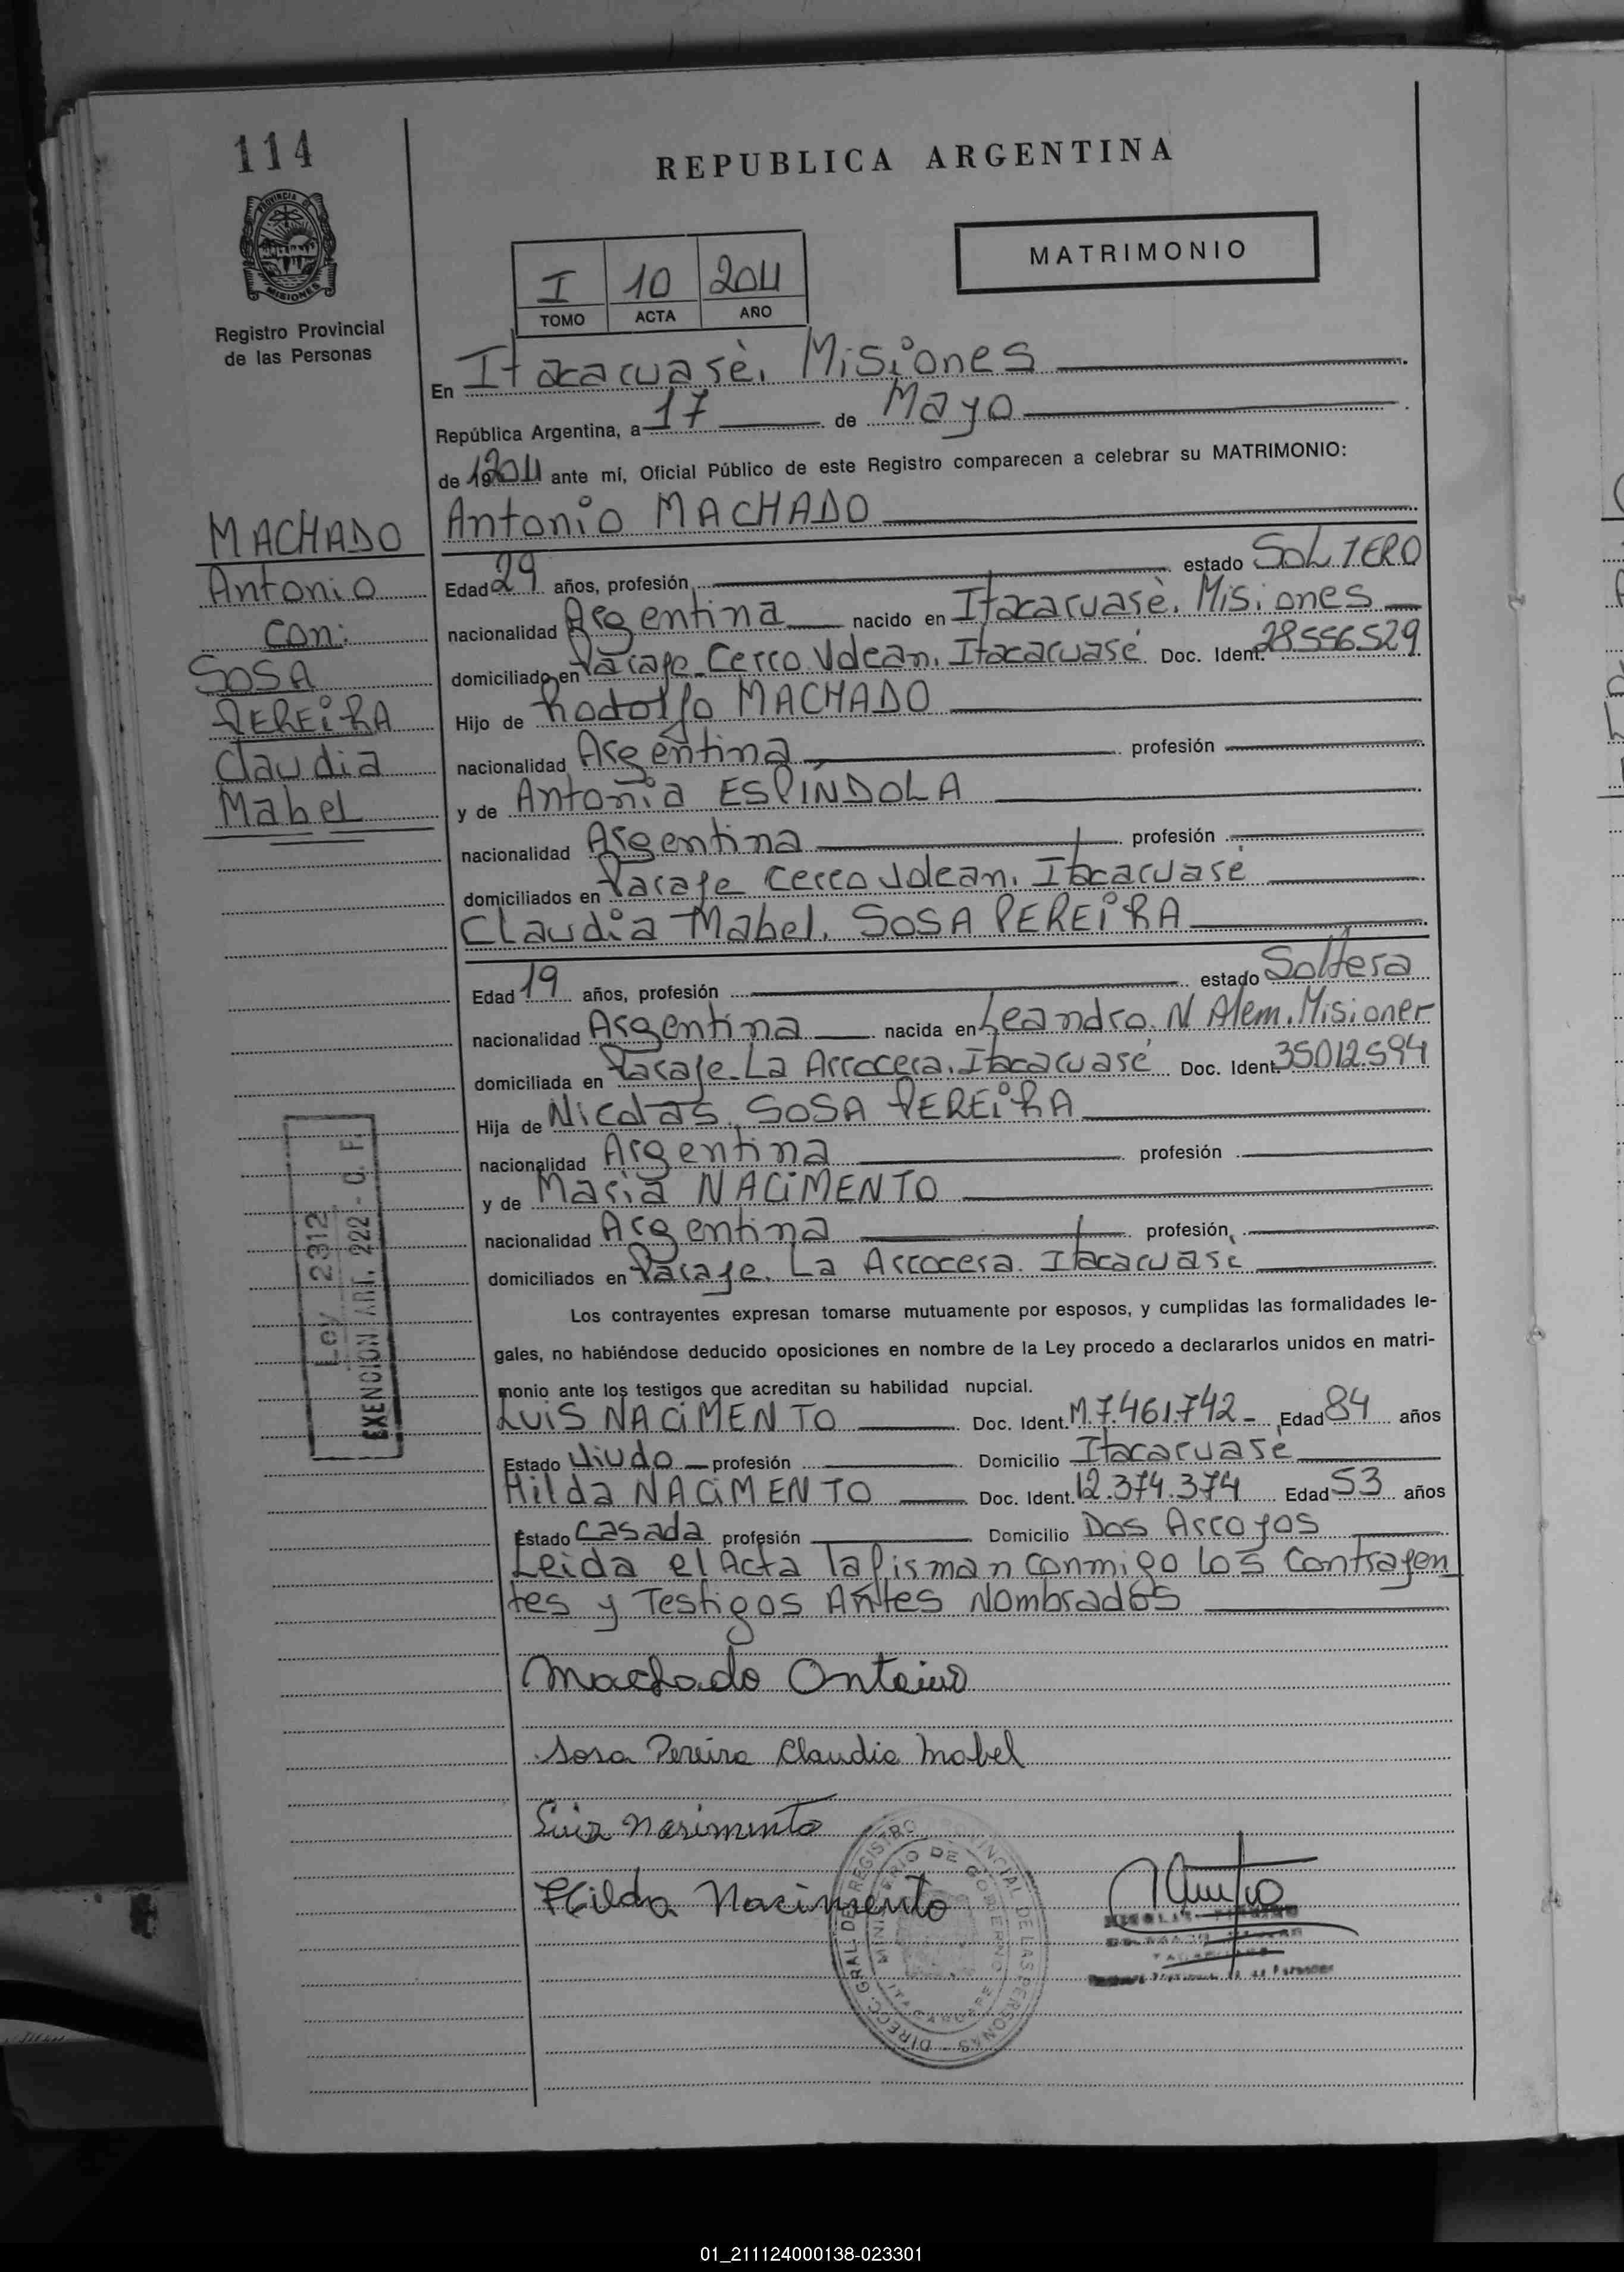 114
REPUBLICA ARGENTINA
PROVINCIA DE
MISIONES
Registro Provincial
de las Personas
MATRIMONIO
I 10 2011
TOMO ACTA AÑO
En Itacaruasè, Misiones
República Argentina, a 17 de Mayo
de 19 2011 ante mí, Oficial Público de este Registro comparecen a celebrar su MATRIMONIO:
MACHADO
Antonio
con:
SOSA
PEREiRA
Claudia
Mabel
Antonio MACHADO
Edad 29 años, profesión estado SOLTERO
nacionalidad Argentina nacido en Itacaruasè. Misiones
domiciliado en Paraje Cerro Volcan. Itacaruasé Doc. Ident. 28556529
Hijo de Rodolfo MACHADO
nacionalidad Argentina profesión
y de Antonia ESPÍNDOLA
nacionalidad Argentina profesión
domiciliados en Paraje Cerro Volcan. Itacaruasé
Claudia Mabel. SOSA PEREiRA
Edad 19 años, profesión estado Soltera
nacionalidad Argentina nacida en Leandro. N Alem. Misiones
domiciliada en Paraje La Arrocera. Itacaruasé Doc. Ident. 35012.594
Hija de Nicolas SOSA PEREiRA
nacionalidad Argentina profesión
y de Maria NACiMENTO
nacionalidad Argentina profesión
domiciliados en Paraje. La Arrocera. Itacaruase
Ley 2312
EXENCION ART. 222 - C. F.
Los contrayentes expresan tomarse mutuamente por esposos, y cumplidas las formalidades le-
gales, no habiéndose deducido oposiciones en nombre de la Ley procedo a declararlos unidos en matri-
monio ante los testigos que acreditan su habilidad nupcial.
LUiS NACiMENTO Doc. Ident. M.7.461.742 Edad 84 años
Estado Viudo profesión Domicilio Itacaruasè
Hilda NACiMENTO Doc. Ident. 12.374.374 Edad 53 años
Estado Casada profesión Domicilio Dos Arroyos
Leida el Acta la firman conmigo los Contrayen
tes y Testigos Antes Nombrados
Machado Antonio
Sosa Pereira Claudia Mabel
Luiz Nasimento
Hilda Nacimento
DIRECC. GRAL. DEL REGISTRO PROVINCIAL DE LAS PERSONAS
MINISTERIO DE GOBIERNO
ITACARUARE
01_211124000138-023301